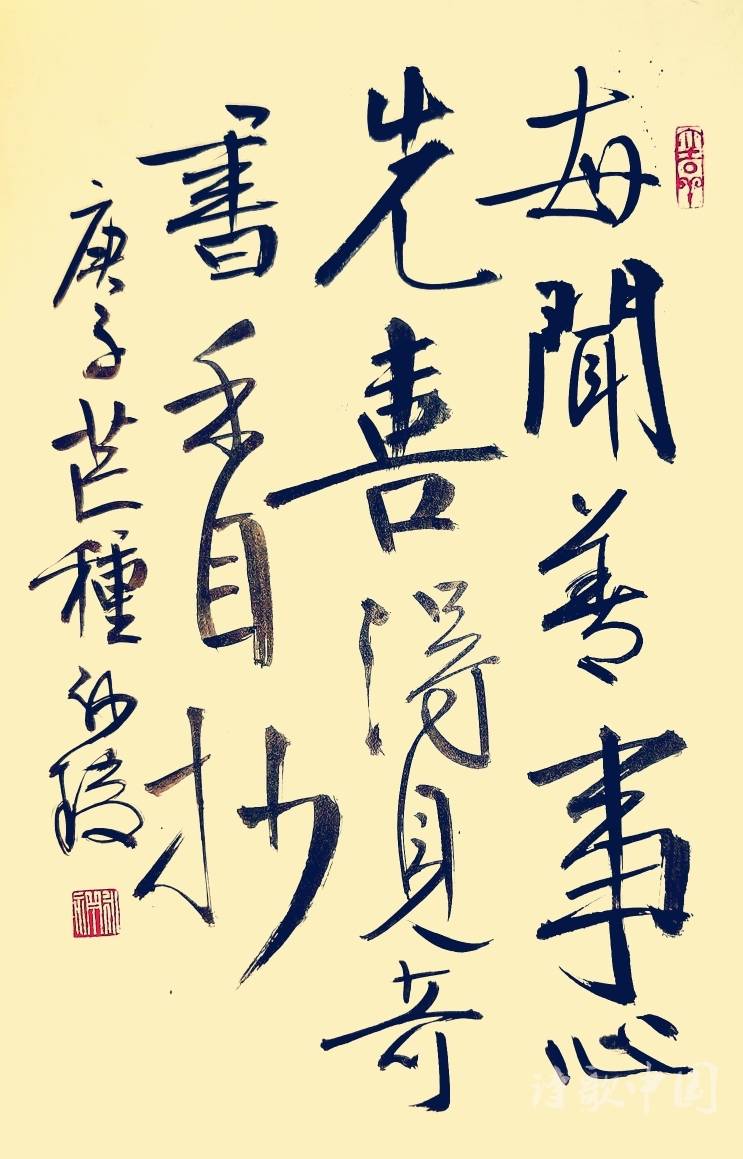 每聞善事心
先喜得見奇
書手自抄
庚子芒種
诗歌中国